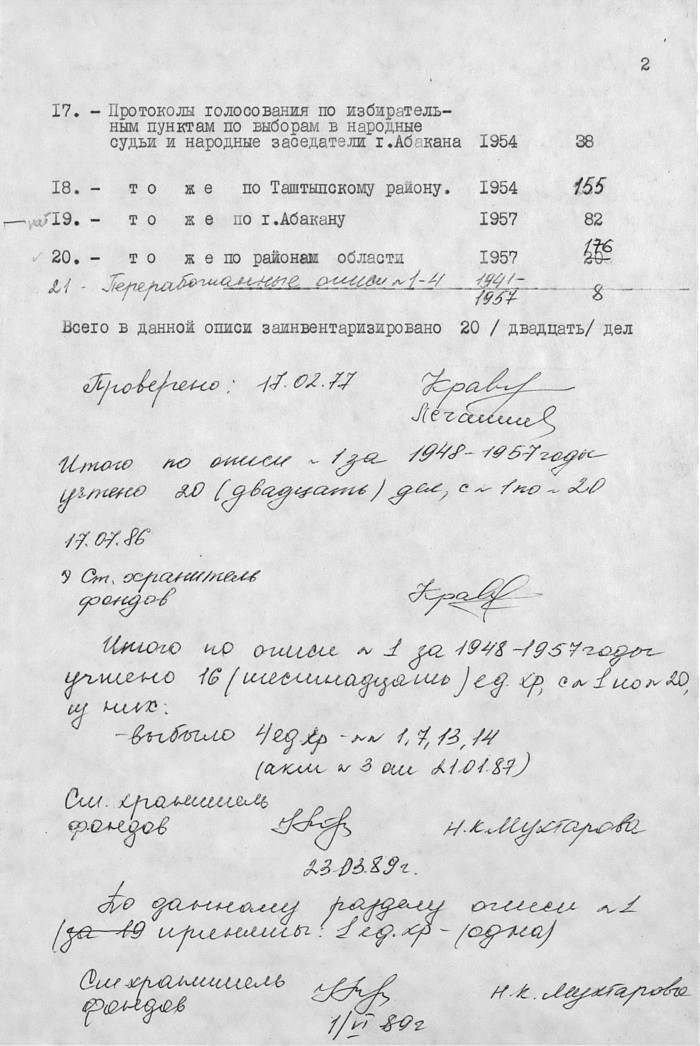 2
17. - Протоколы голосования по избиратель-
ным пунктам по выборам в народные
судьи и народные заседатели г.Абакана 1954 38
18. - т о ж е по Таштыпскому району. 1954 155
19. - т о ж е по г.Абакану 1957 82
176
20. - т о ж е по районам области 1957 20
21 - Переработанные описи №1-4 1941-
1957 8
Всего в данной описи заинвентаризировано 20 / двадцать/ дел
Проверено: 17.02.77
Итого по описи №1 за 1948-1957 годы
учтено 20 (двадцать) дел, с №1 по №20
17.07.86
Ст. хранитель
фондов
Итого по описи №1 за 1948-1957 годы
учтено 16 (шестнадцать) ед. хр, с №1 по №20,
из них:
-выбыло 4 ед хр - №№ 1, 7, 13, 14
(акт №3 от 21.01.87)
Ст. хранитель
фондов Н.К.Мухтарова
23.03.89г.
По данному разделу описи №1
(за 19 приняты: 1 ед. хр - (одна)
Ст хранитель
фондов Н.К. Мухтарова
1/VI 89г